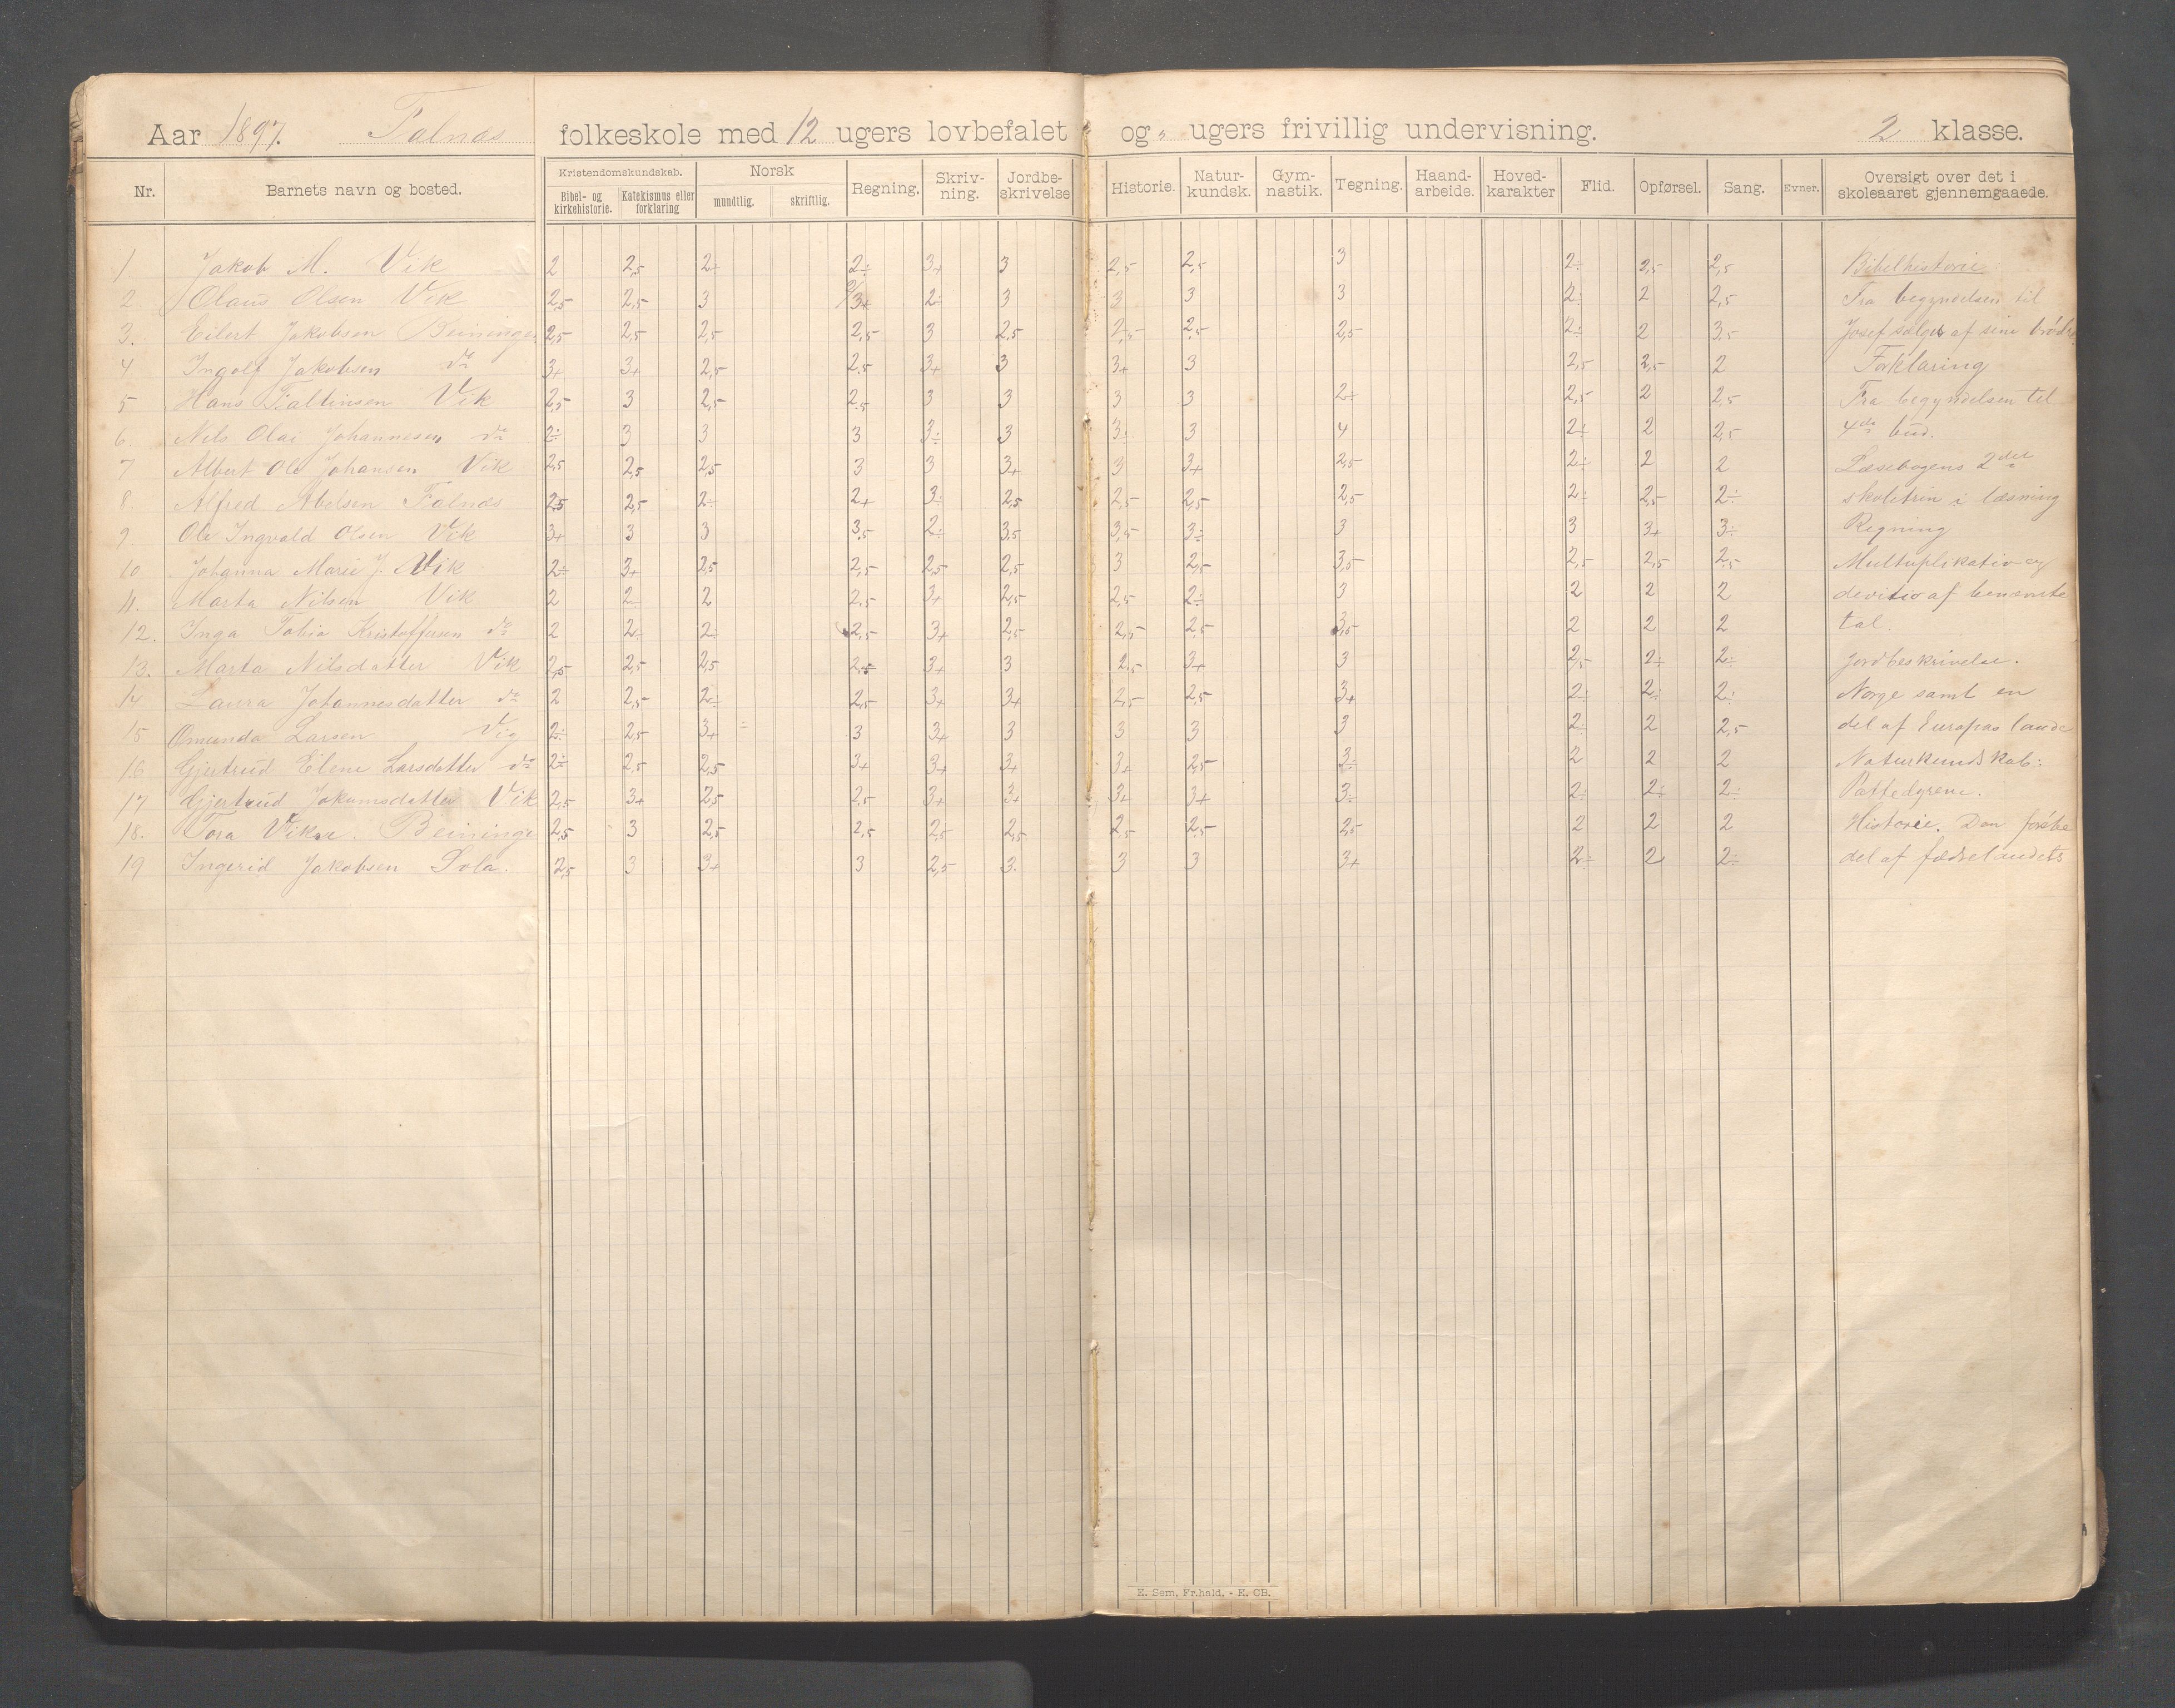 Aar 1897. Falnæs folkeskole med 12 ugers lovbefalet og „ ugers frivillig undervisning. 2 klasse.
Nr. Barnets navn og bosted. Kristendomskundskab. Bibel- og kirkehistorie. Katekismus eller forklaring Norsk mundtlig. skriftlig. Regning. Skriv-ning. Jordbe-skrivelse Historie. Natur-kundsk. Gym-nastik. Tegning. Haand-arbeide. Hoved-karakter Flid. Opførsel. Sang. Evner. Oversigt over det i skoleaaret gjennemgaaede.
1. Jakob M. Vik 2 2,5 2÷ 2÷ 3+ 3 2,5 2,5 3 2÷ 2,5 2,5 Bibelhistorie
2. Olaus Olsen Vik 2,5 2,5 3 3+ 2÷ 3 3 3 3 2÷ 2 2,5 Fra begyndelsen til
3. Eilert Jakobsen Beininge 2,5 2,5 2,5 2,5 3 2,5 2,5 2,5 2,5 2÷ 2 3,5 Josef sælges af sine brødre
4 Ingolf Jakobsen do 3+ 3+ 2,5 2,5 3+ 3 3+ 3 2,5 2,5 2 Forklaring
5 Hans Faltinsen Vik 2,5 3 2,5 2,5 3 3 3 3 2÷ 2,5 2 2,5 Fra begyndelsen til
6. Nils Olai Johannesen do 2÷ 3 3 3 3÷ 3 3÷ 3 4 2÷ 2 2,5 4de bud.
7 Albert Ole Johansen Vik 2,5 2,5 2,5 3 3 3+ 3 3+ 2,5 2÷ 2 2 Læsebogens 2det
8. Alfred Abelsen Falnæs 2,5 2,5 2÷ 2+ 3÷ 2,5 2,5 2,5 2,5 2÷ 2,5 2÷ skoletrin i læsning
9. Ole Ingvald Olsen Vik 3+ 3 3 3,5 2÷ 3,5 3,5 3÷ 3 3 3+ 3÷ Regning
10. Johanna Marie J. Vik 2÷ 3+ 2,5 2,5 2,5 2,5 3 2,5 3,5 2,5 2,5 2,5 Multuplikation og
11. Marta Nilsen Vik 2 2÷ 2 2,5 3+ 2,5 2,5 2÷ 3 2 2 2 devitio af benævnte
12. Inga Tobia Kristoffersen do 2 2÷ 2÷ 2,5 3+ 2,5 2,5 2,5 3,5 2 2 2 tal.
13. Marta Nilsdatter Vik 2,5 2,5 2,5 2,5 3+ 3 2,5 3+ 3 2,5 2÷ 2÷ Jordbeskrivelse.
14 Laura Johannesdatter do 2 2,5 2÷ 2,5 3+ 3+ 2,5 2,5 3+ 2÷ 2÷ 2÷ Norge samt en
15 Omunda Larsen Vig 2÷ 2,5 3+ ÷ 3 3+ 3 3 3 3 2÷ 2 2,5 del af Europas lande
16 Gjertrud Elene Larsdatter do 2÷ 2,5 2,5 3+ 3+ 3+ 3+ 2,5 3÷ 2 2 2 Naturkundskab:
17 Gjertrud Jakumsdatter Vik 2,5 3+ 2,5 2,5 3+ 3+ 3+ 3+ 3÷ 2÷ 2÷ 2÷ Pattedyrene.
18. Tora Beininge 2,5 3 2,5 2,5 2,5 2,5 2,5 2,5 2,5 2 2 2 Historie. Den første
19 Ingerid Jakobsen Sola. 2,5 3 3+ 3 2,5 3. 3 3 3+ 2÷ 2 2÷ del af fædrelandets
E. Sem, Fr.hald. - E. CB.